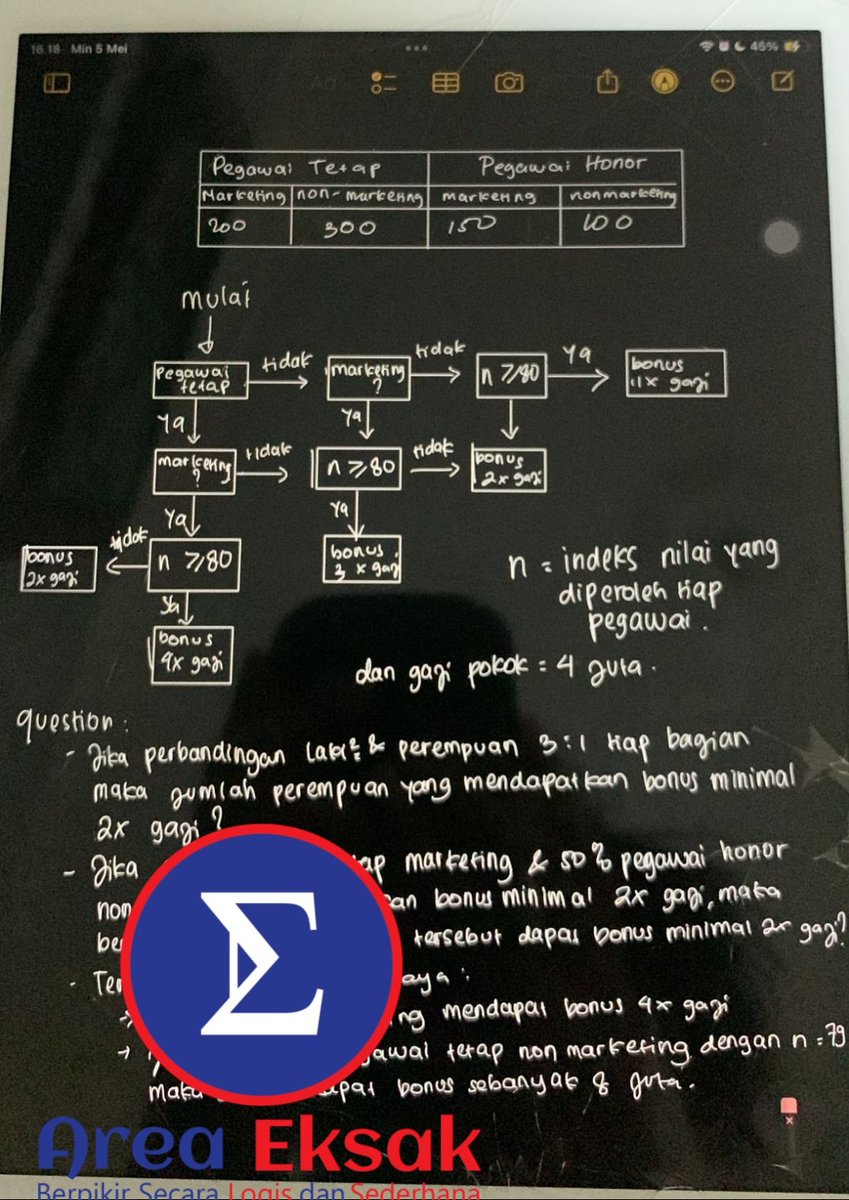 16.18 Min 5 Mei
45%
Aa
Pegawai Tetap Pegawai Honor
Marketing non-marketing marketing nonmarketing
200 300 150 100
mulai
Pegawai tetap
tidak
marketing ?
tidak
n ≥ 80
Ya
bonus
gagi
Ya
Ya
marketing ?
tidak
n ≥ 80
tidak
bonus
2x gagi
Ya
Ya
tidak
bonus
2x gagi
n ≥ 80
bonus
3 x gagi
Ya
bonus
4x gagi
n = indeks nilai yang
diperoleh tiap
pegawai.
dan gagi pokok = 4 juta.
question:
- Jika perbandingan laki² & perempuan 3:1 tiap bagian
maka jumlah perempuan yang mendapatkan bonus minimal
2x gagi?
- Jika marketing & 50% pegawai honor
non bonus minimal 2x gagi, maka
tersebut dapat bonus minimal 2x gagi?
-
mendapat bonus 4x gagi
→ tetap non marketing dengan n = 79
maka bonus sebanyak 8 juta.
Σ
Area Eksak
Berpikir Secara Logis dan Sederhana